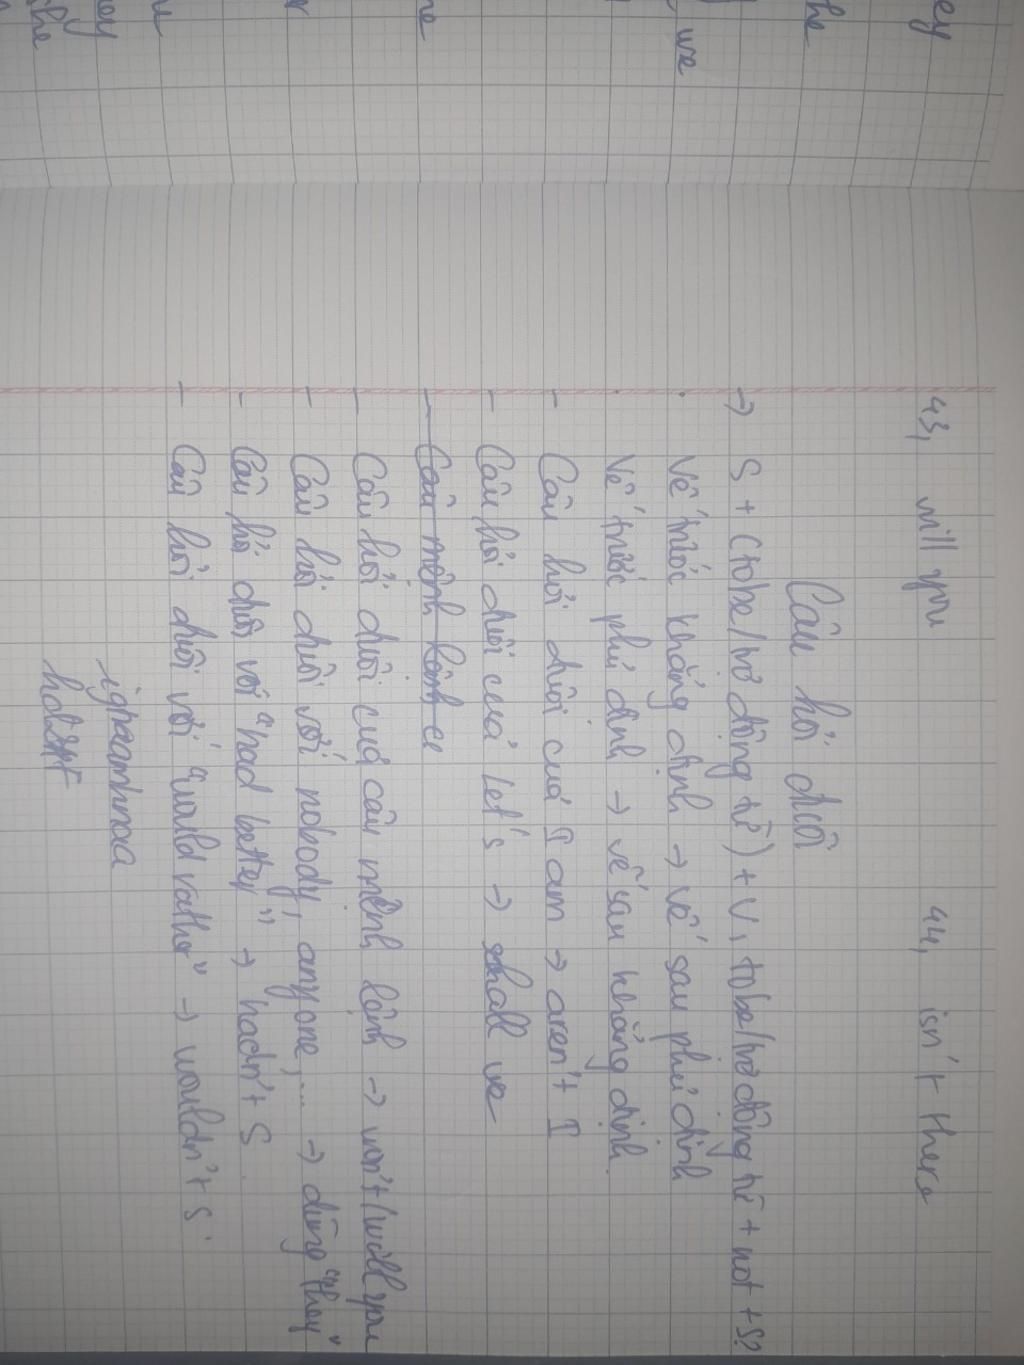 ey
he
we
re
ey
he
43, will you 44, isn't there
Câu hỏi đuôi
→ S + (tobe/trợ động từ) + V, tobe/trợ động từ + not + S?
. Vế trước khẳng định → vế sau phủ định
. Vế trước phủ định → vế sau khẳng định.
- Câu hỏi đuôi của I am → aren't I
- Câu hỏi đuôi của Let's → shall we
- Câu mệnh lệnh c
- Câu hỏi đuôi của câu mệnh lệnh → won't/will you
- Câu hỏi đuôi với nobody, anyone,... → dùng "they"
- Câu hỏi đuôi với "had better" → hadn't S
- Câu hỏi đuôi với "would rather" → wouldn't S.